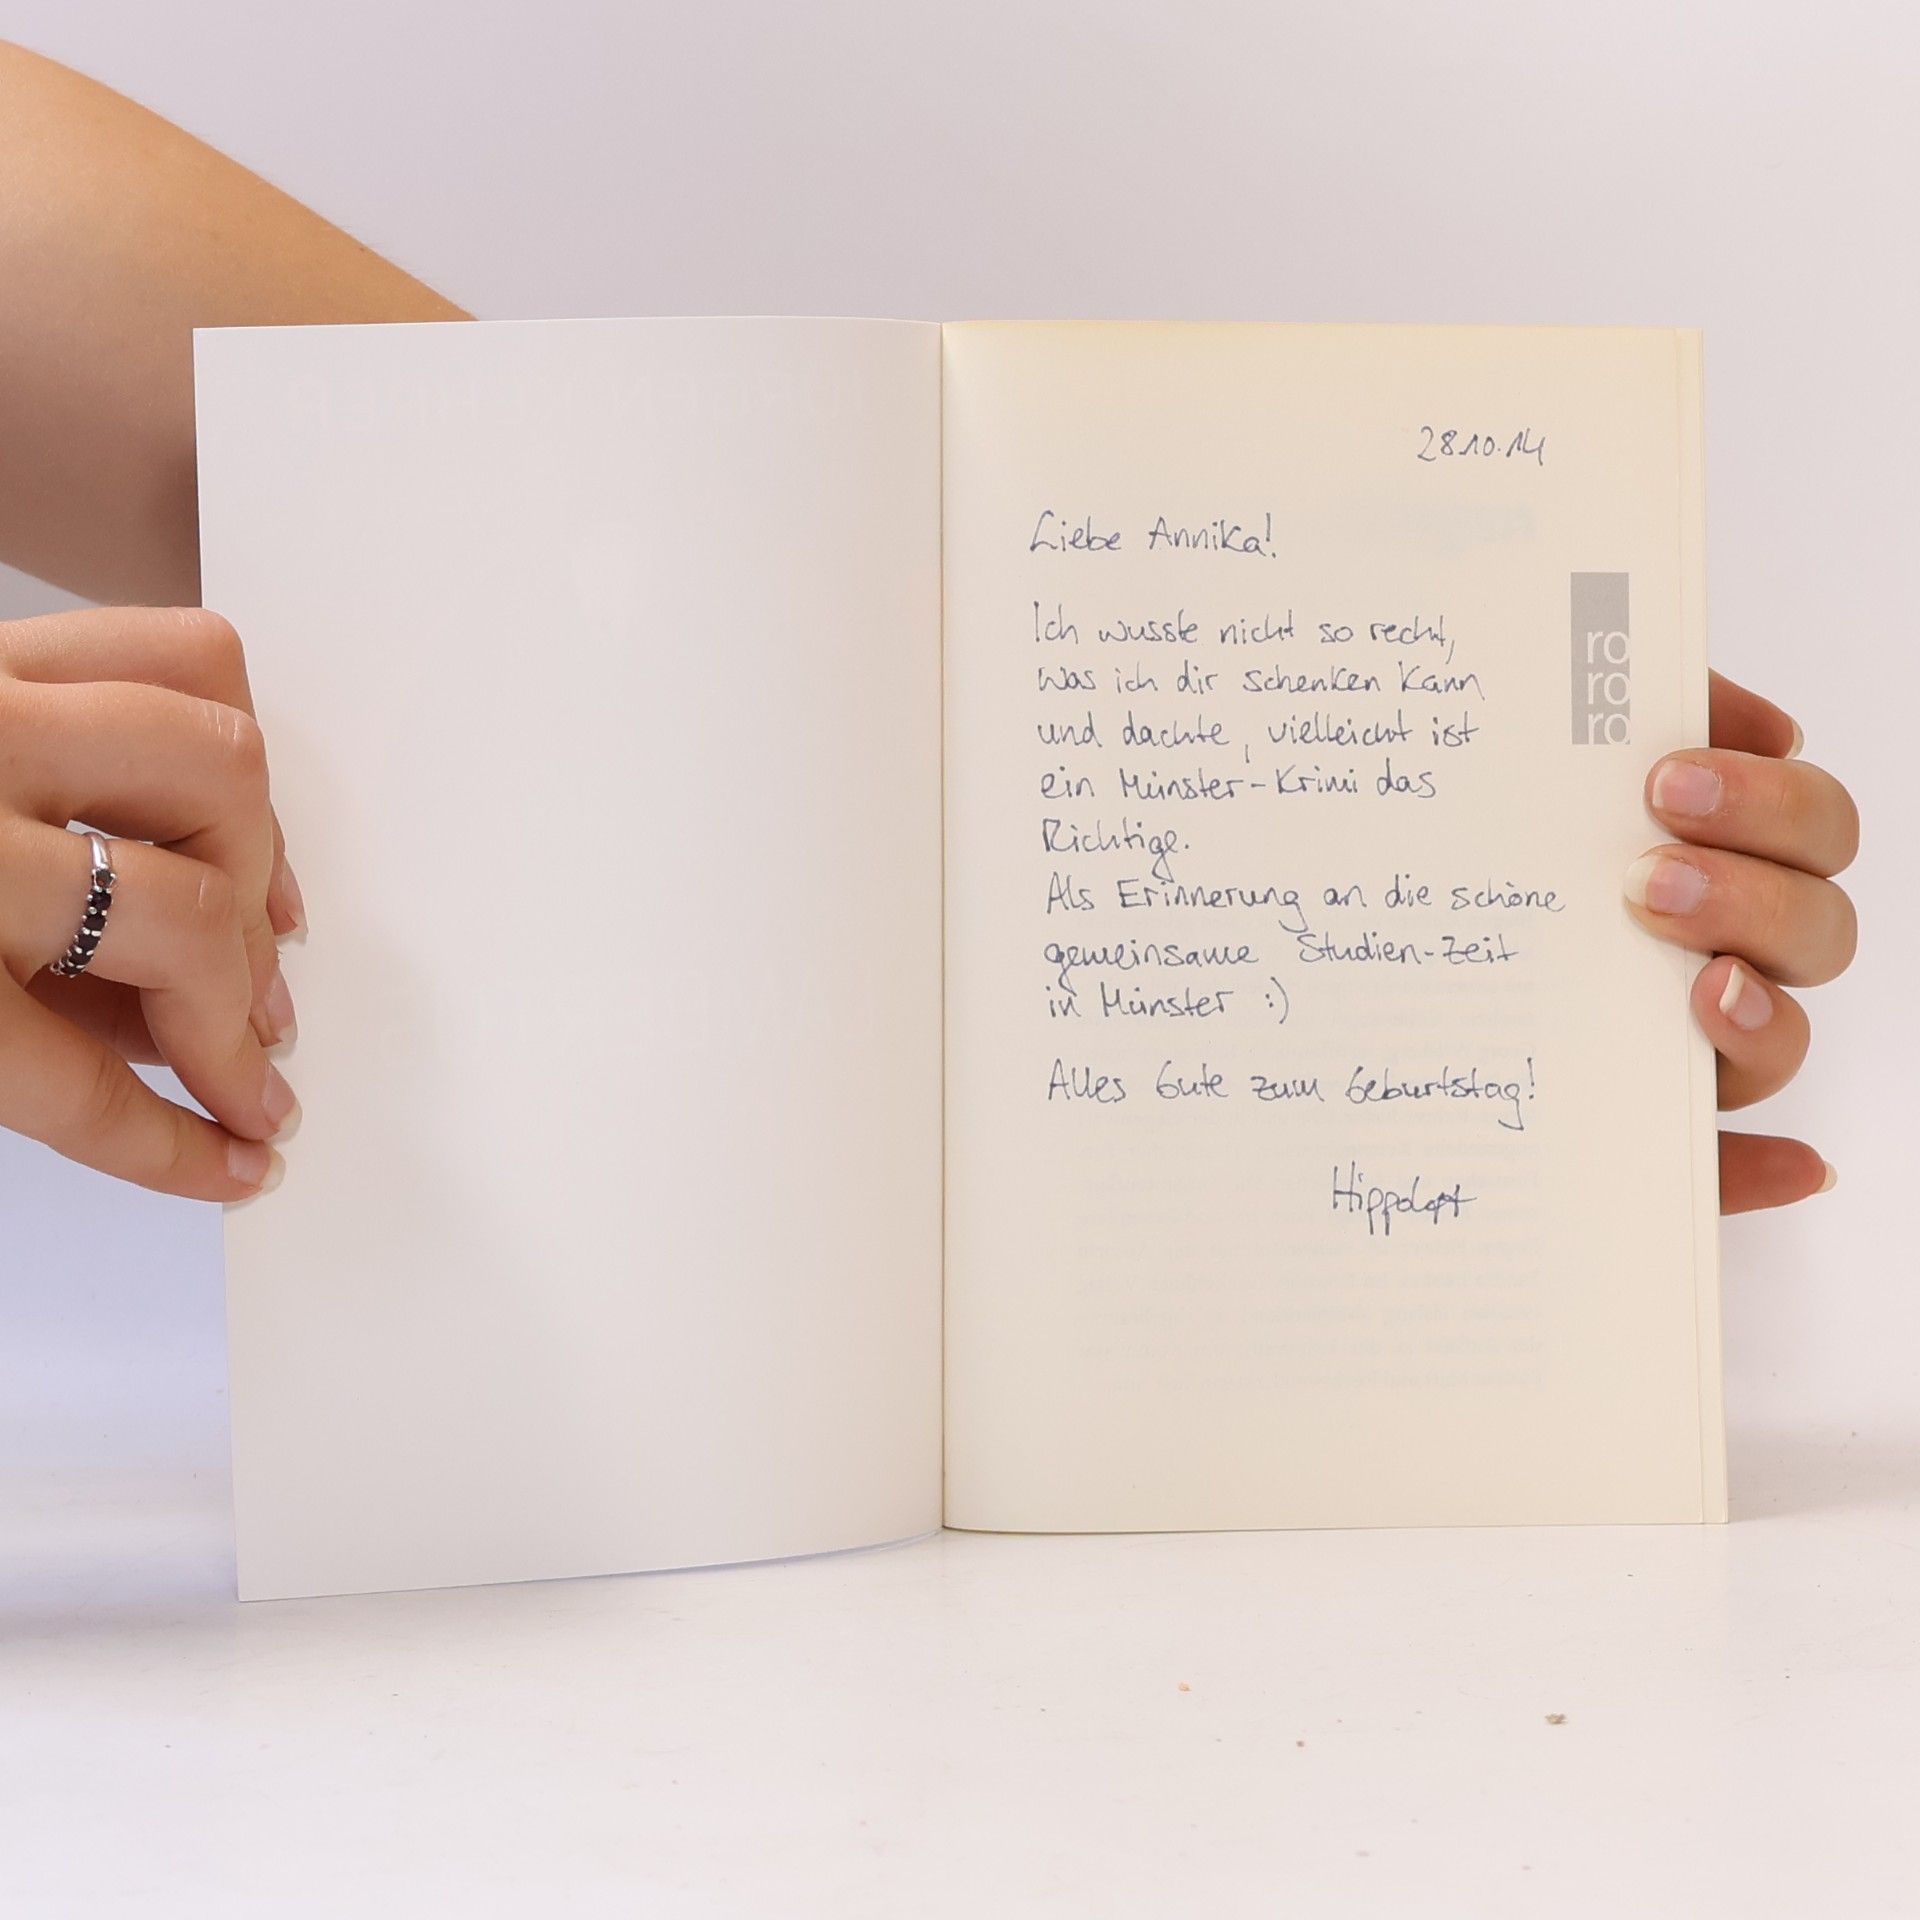 28.10.14
Liebe Annika!
Ich wusste nicht so recht,
was ich dir schenken kann
und dachte, vielleicht ist
ein Münster-Krimi das
Richtige.
Als Erinnerung an die schöne
gemeinsame Studien-Zeit
in Münster :)
Alles Gute zum Geburtstag!
ro
ro
ro